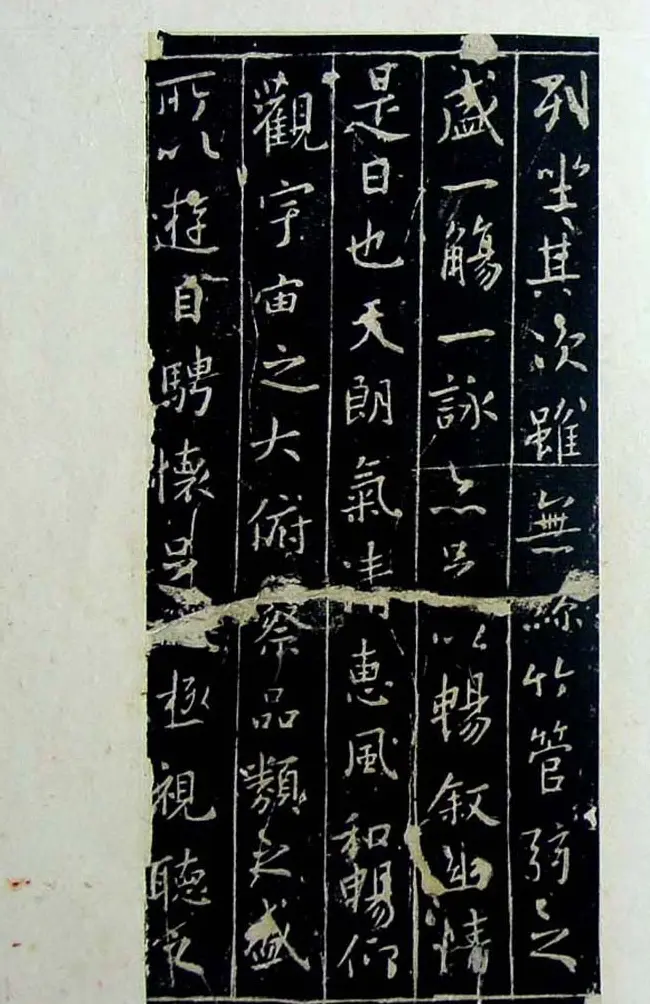 列坐其次雖無絲竹管弦之
盛一觴一詠亦足以暢叙幽情
是日也天朗氣清惠風和暢仰
觀宇宙之大俯察品類之盛
所以遊目騁懷足極視聽之